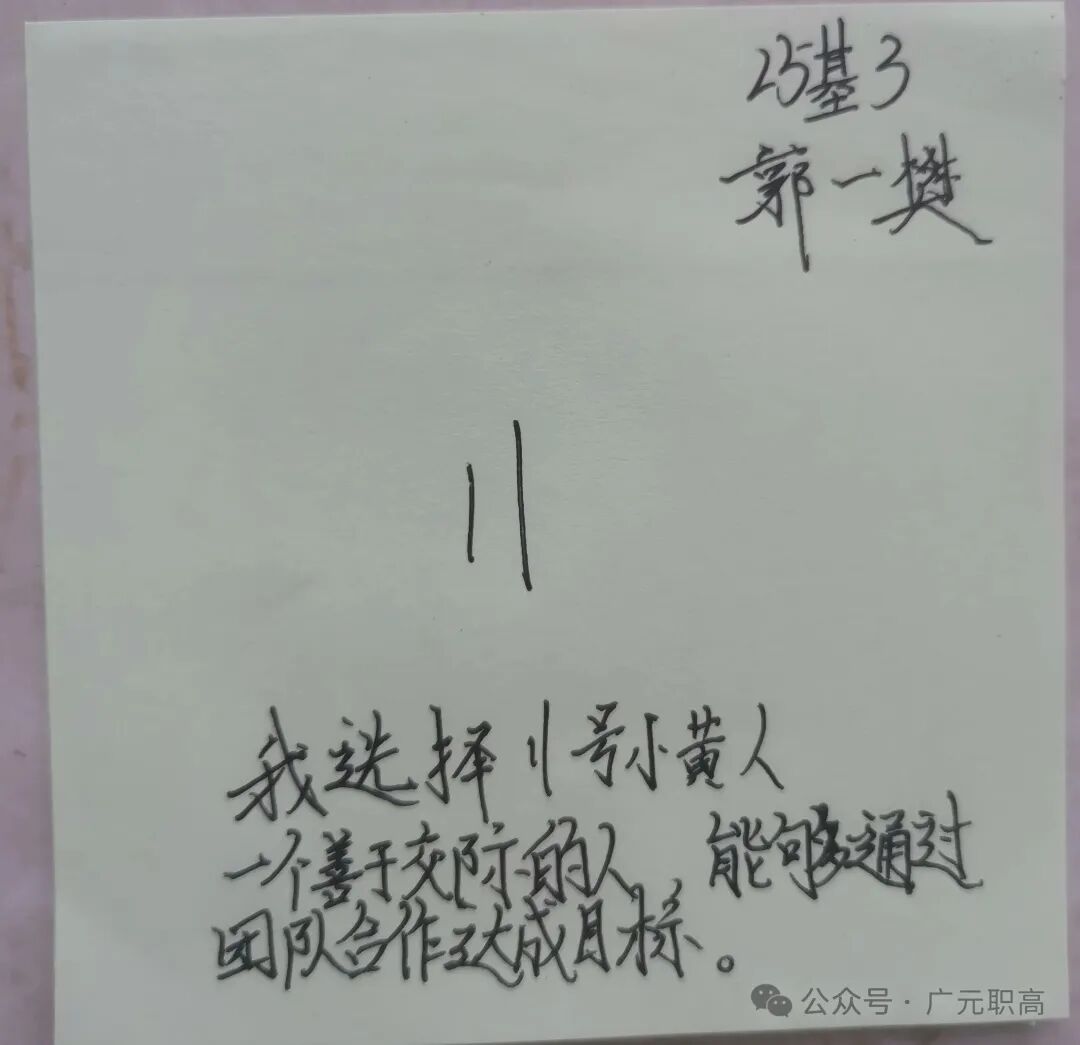 25基3
郭一樊
11
我选择11号小黄人
一个善于交际的人。能够通过
团队合作达成目标。
公众号·广元职高